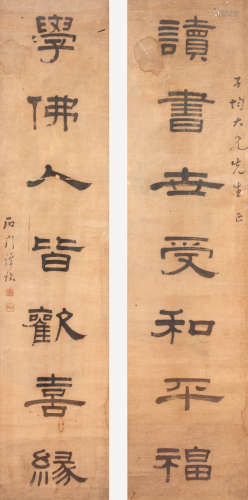 讀書世受和平福
子均大兄先生正
學佛人皆歡喜緣